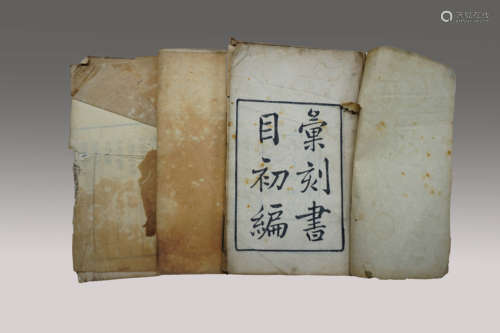 彙刻書
目初編